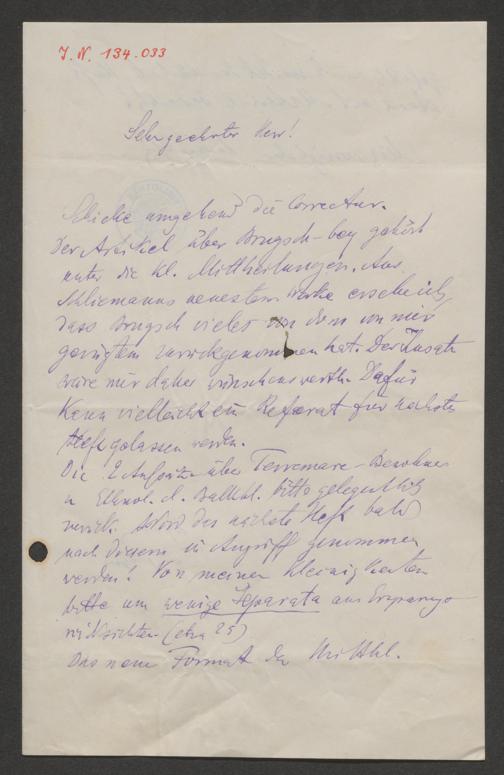 J. N. 134.033
Sehrgeehrter Herr!
Schicke umgehend die Correctur.
Der Artikel über Brugsch-bey gehört
unter die kl. Mittheilungen. Aus
Schliemanns neuestem Werke erscheint,
dass Brugsch vieles von dem von mir
gerügten zurückgenommen hat. Der Zusatz
wäre mir daher wünschenswerth. Dafür
kann vielleicht ein Referat für nächstes
Heft gelassen werden.
Die 2 Aufsätze über Terremare-Bewohner
u Ethnol. d. bitte gelegentlich
zurück. Wird das nächste Heft bald
nach diesem in Angriff genommen
werden? Von meinen Kleinigkeiten
bitte um wenige Separata aus
(etwa 25)
Das neue Format der Mitthl.